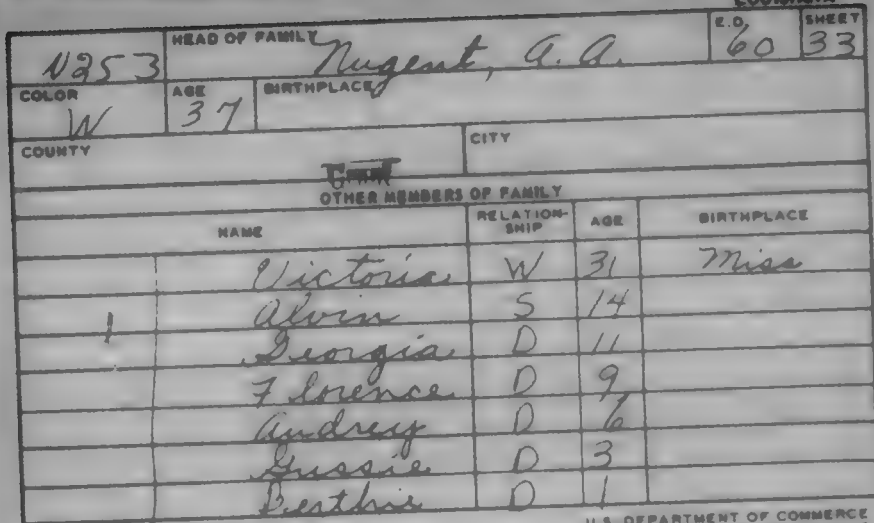 HEAD OF FAMILY E.D. SHEET
N253 Nugent, A. A. 60 33
COLOR AGE BIRTHPLACE
W 37
COUNTY CITY
Grant
OTHER MEMBERS OF FAMILY
NAME RELATION-SHIP AGE BIRTHPLACE
Victoria W 31 Miss
1 Alvin S 14
Georgia D 11
Florence D 9
Audrey D 6
Gussie D 3
Berthie D 1
U.S. DEPARTMENT OF COMMERCE